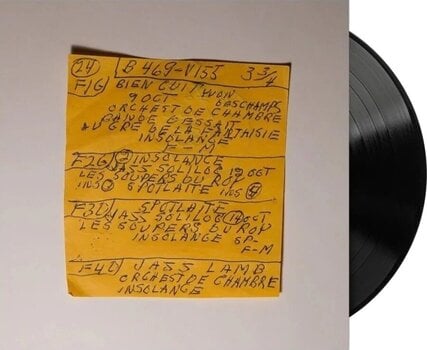 24 B 469-VISS 3 3/4
F1G BIEN CUIT YVON
9 OCT DESCHAMPS
ORCHEST DE CHAMBRE
BANDE D ESSAIT
AU GRE DE LA FANTAISIE
INSOLANGE
F-M
F2G 2 INSOLANCE
JASS SOLILOG 19 OCT
LES SOUPERS DU ROY
INS 3 SPOTLAITE INS 4
F3D SPOTLAITE
JASS SOLILOG 19 OCT
LES SOUPERS DU ROY
INSOLANGE SP-
F-M
F4D JASS LAMB
ORCHEST DE CHAMBRE
INSOLANGE